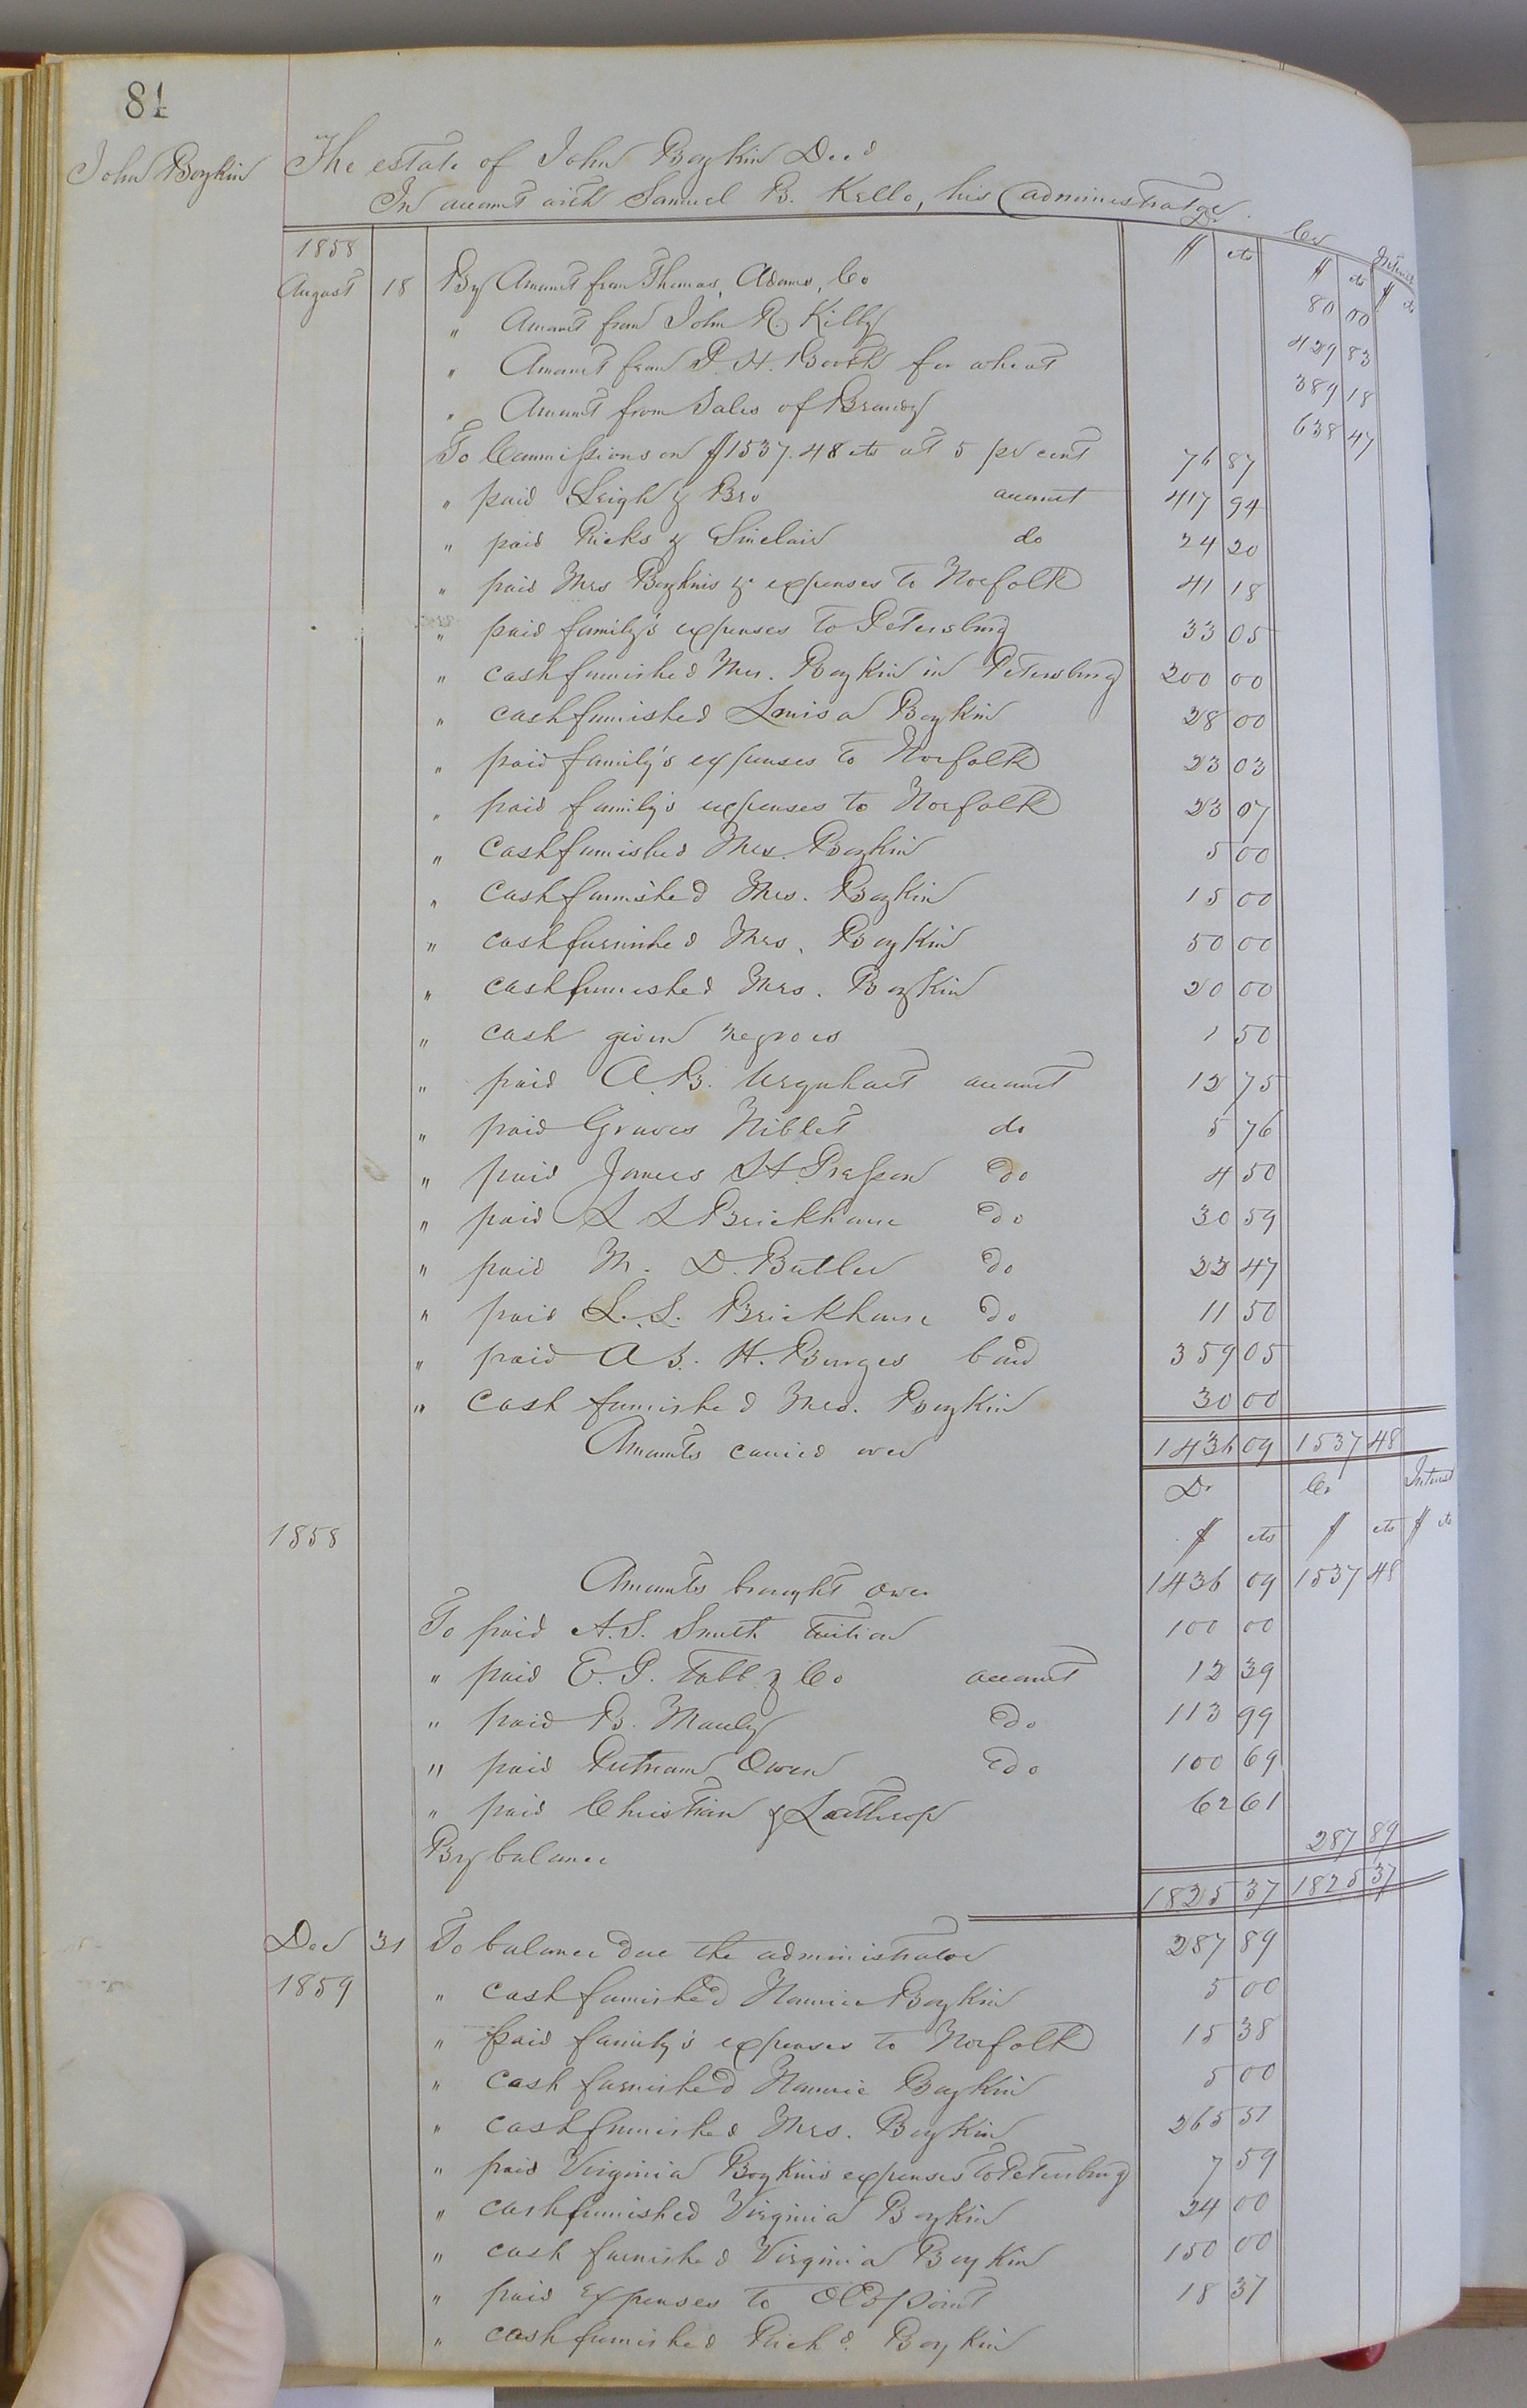 81
John Boykin
The estate of John Boykin Decd
In account with Samuel B. Kello, his administrator.
Dr Cr Interest
1858 $ cts $ cts $ cts
August 18 By Amount from Thomas, Adams, Co 80 00
" Amount from John R. Kilby 429 83
" Amount from P. H. Booth for wheat 389 18
" Amount from Sales of Brandy 638 47
To Commissions on $1537.48 cts at 5 pr cent 76 87
" paid Leigh & Bro account 417 94
" paid Ricks & Sinclair do 24 20
" paid Mrs Boykins &c expenses to Norfolk 41 18
" paid family's expenses to Petersburg 33 05
" cash furnished Mrs. Boykin in Petersburg 200 00
" cash furnished Louisa Boykin 28 00
" paid family's expenses to Norfolk 23 03
" paid family's expenses to Norfolk 23 07
" cash furnished Mrs. Boykin 5 00
" cash furnished Mrs. Boykin 15 00
" cash furnished Mrs. Boykin 50 00
" cash furnished Mrs. Boykin 20 00
" cash given negroes 1 50
" paid A. B. Urquhart account 12 75
" paid Graves Niblet do 5 76
" paid James H. do 4 50
" paid L L Brickhouse do 30 59
" paid M. D. Butler do 22 47
" paid L. L. Brickhouse do 11 50
" paid H. Burges bond 359 05
" cash furnished Mrs. Boykin 30 00
Amounts carried over 1436 09 1537 48
Dr Cr Interest
1858 $ cts $ cts $ cts
Amounts brought over 1436 09 1537 48
To paid A. S. Smith tuition 100 00
" paid E. P. Tabb & Co account 12 39
" paid B. Manly do 113 99
" paid Putnam Owen do 100 69
" paid Christian & Lathrop 62 61
By balance 287 89
1825 37 1825 37
Dec 31 To balance due the administrator 287 89
1859 " cash furnished Nannie Boykin 5 00
" paid family's expenses to Norfolk 15 38
" cash furnished Nannie Boykin 5 00
" cash furnished Mrs. Boykin 265 51
" paid Virginia Boykins expenses to Petersburg 7 59
" cash furnished Virginia Boykin 24 00
" cash furnished Virginia Boykin 150 00
" paid expenses to Old point 18 37
" cash furnished Richd. Boykin